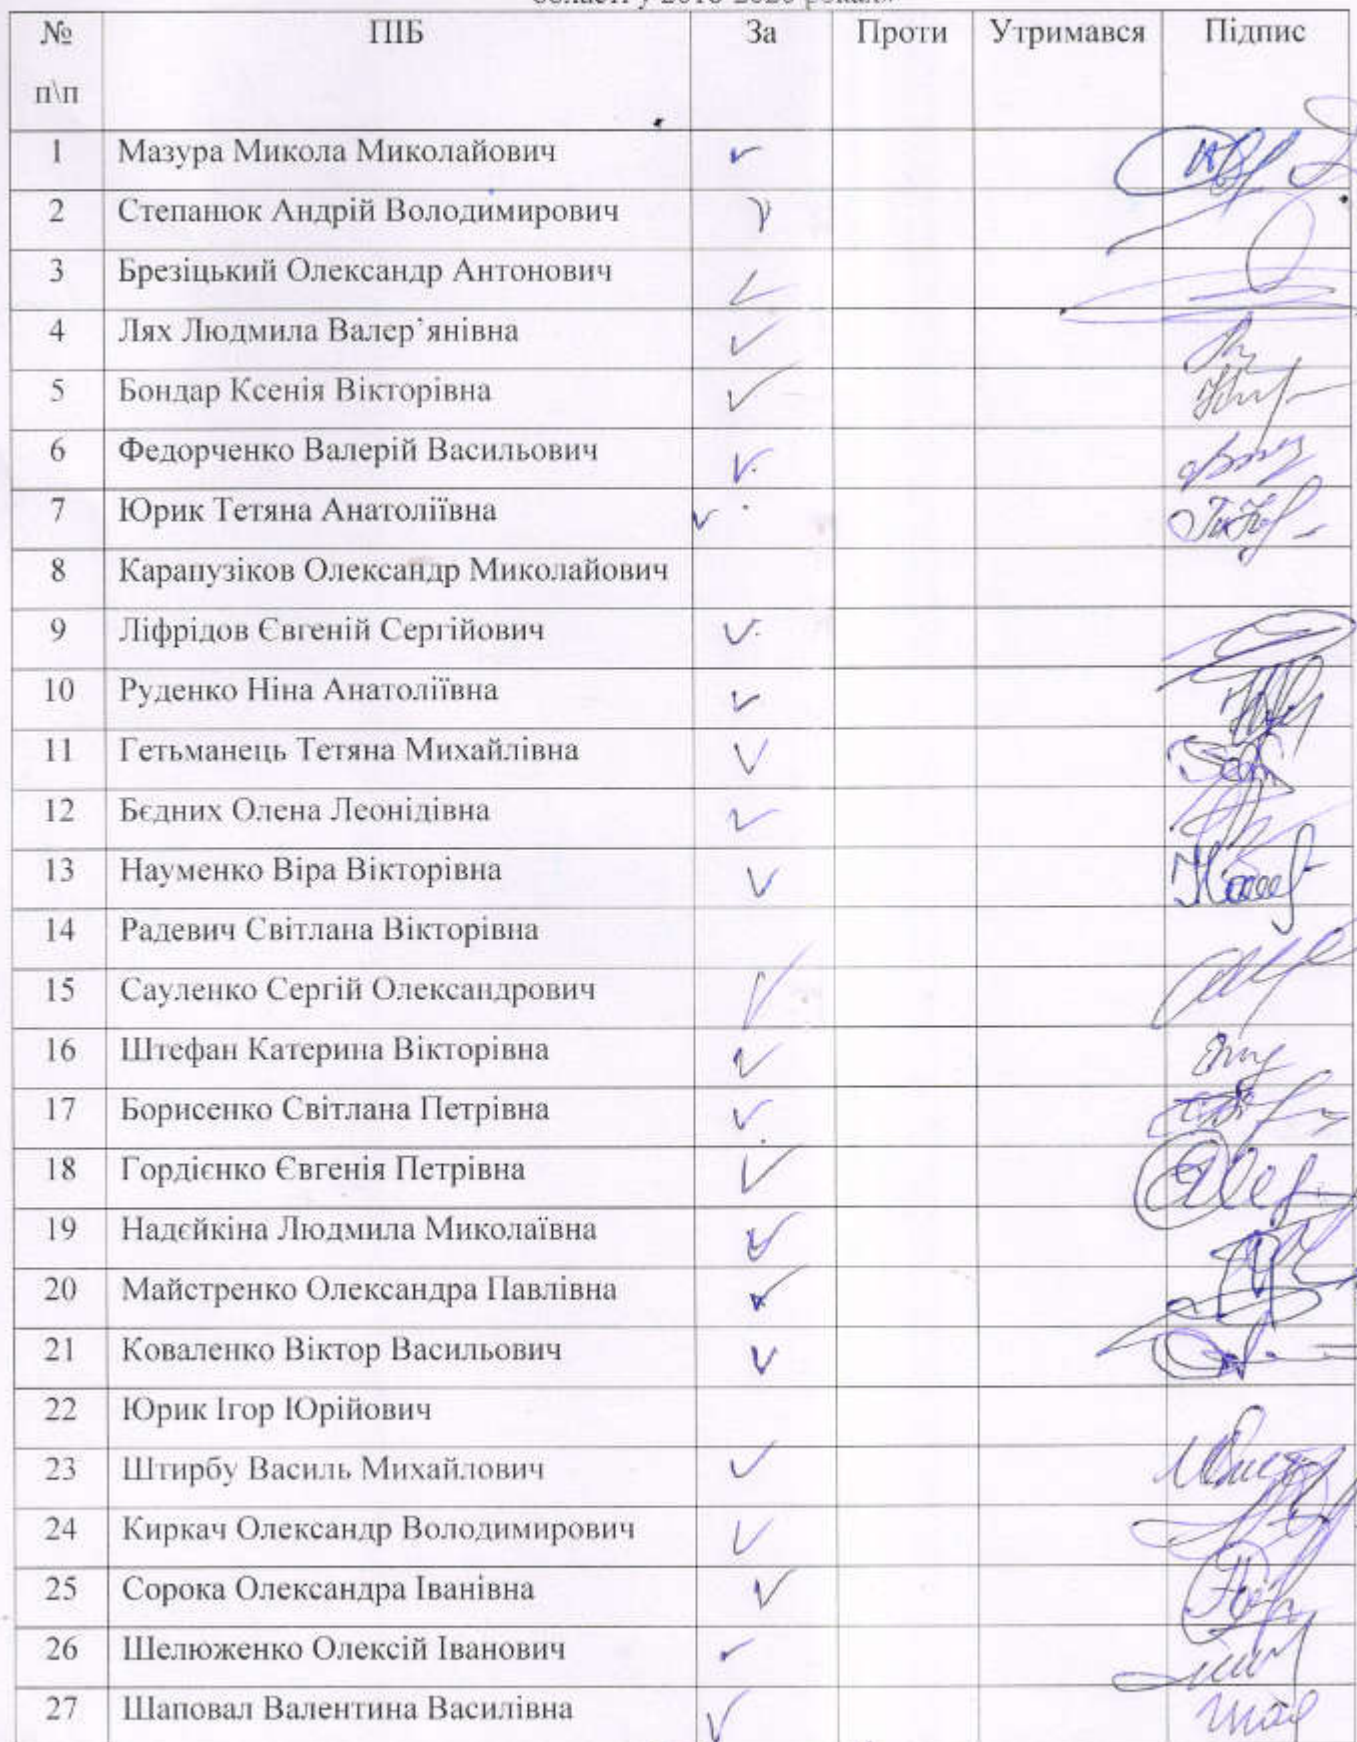 № ПІБ За Проти Утримався Підпис
п\п
1 Мазура Микола Миколайович
2 Степанюк Андрій Володимирович
3 Брезіцький Олександр Антонович
4 Лях Людмила Валер’янівна
5 Бондар Ксенія Вікторівна
6 Федорченко Валерій Васильович
7 Юрик Тетяна Анатоліївна
8 Карапузіков Олександр Миколайович
9 Ліфрідов Євгеній Сергійович
10 Руденко Ніна Анатоліївна
11 Гетьманець Тетяна Михайлівна
12 Бєдних Олена Леонідівна
13 Науменко Віра Вікторівна
14 Радевич Світлана Вікторівна
15 Сауленко Сергій Олександрович
16 Штефан Катерина Вікторівна
17 Борисенко Світлана Петрівна
18 Гордієнко Євгенія Петрівна
19 Надєйкіна Людмила Миколаївна
20 Майстренко Олександра Павлівна
21 Коваленко Віктор Васильович
22 Юрик Ігор Юрійович
23 Штирбу Василь Михайлович
24 Киркач Олександр Володимирович
25 Сорока Олександра Іванівна
26 Шелюженко Олексій Іванович
27 Шаповал Валентина Василівна